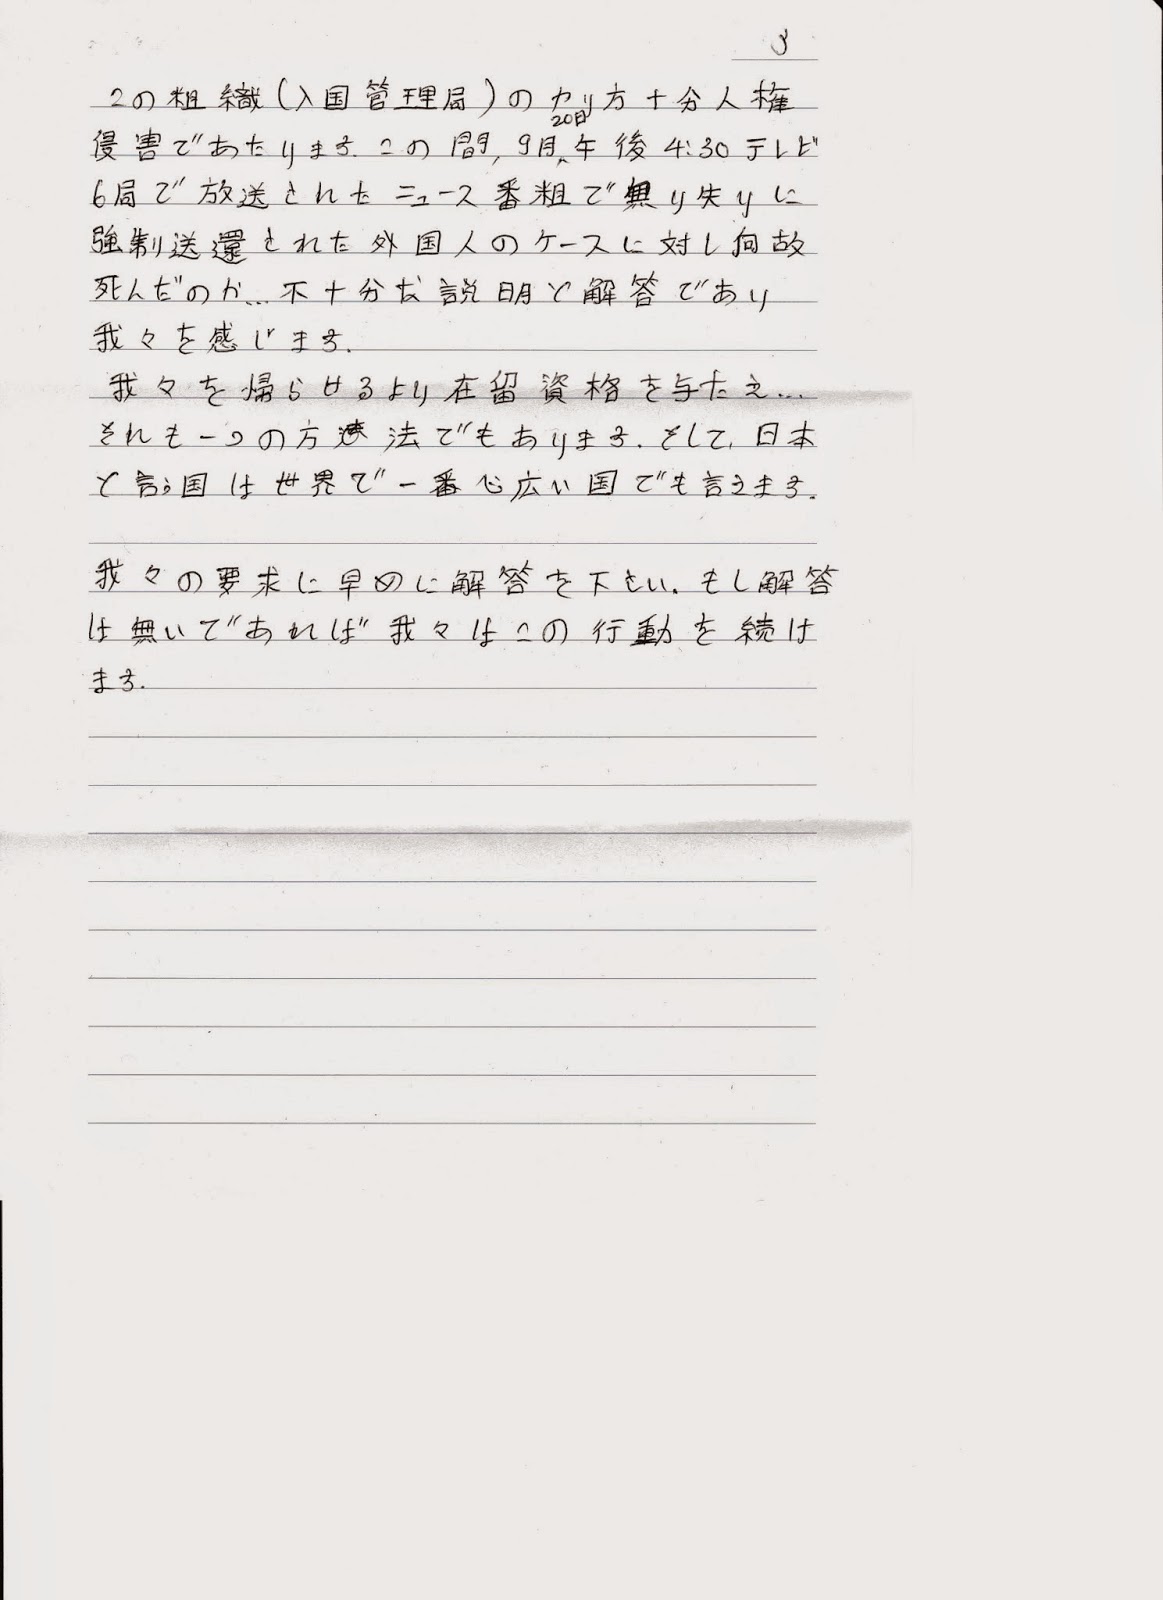 3
この粗織(入国管理局)のカり方十分人権
侵害であたります.この間,9月20日午後4:30テレビ
6局で放送されたニュース番粗で無り失りに
強制送還された外国人のケースに対し何故
死んだのか…不十分な説明と解答であり
我々を感じます.
我々を帰らせるより在留資格を与たえ…
それも一つの方法でもあります.そして,日本
と言う国は世界で一番心広い国でも言えます.
我々の要求に早めに解答を下さい.もし解答
は無いであれば我々はこの行動を続け
ます.